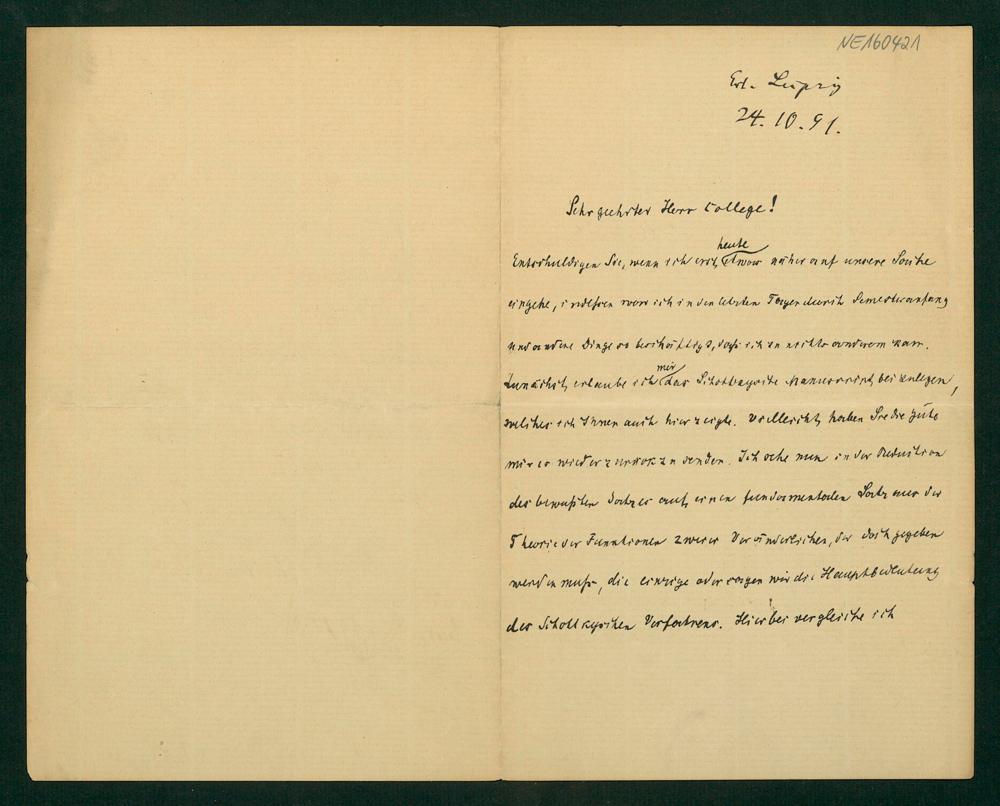 NE160421
Leipzig
24.10.91.
Sehr geehrter Herr College!
heute
Entschuldigen Sie, wenn ich erst etwas näher auf unsere Sache
eingehe, indessen war ich in den letzten Tagen durch Semesteranfang
und andere Dinge so beschäftigt, daß ich zu nichts anderem kam.
mir
Zunächst erlaube ich das Schottkysche Manuscript beizulegen,
welches ich Ihnen auch hier zeigte. Vielleicht haben Sie die Güte
mir es wieder zurückzusenden. Ich sehe nun in der Reduktion
des bewußten Satzes auf einen fundamentalen Satz aus der
Theorie der Funktionen zweier Veränderlichen, der doch gegeben
werden muß, die einzige oder sagen wir die Hauptbedeutung
des Schottkyschen Verfahrens. Hierbei vergleiche ich